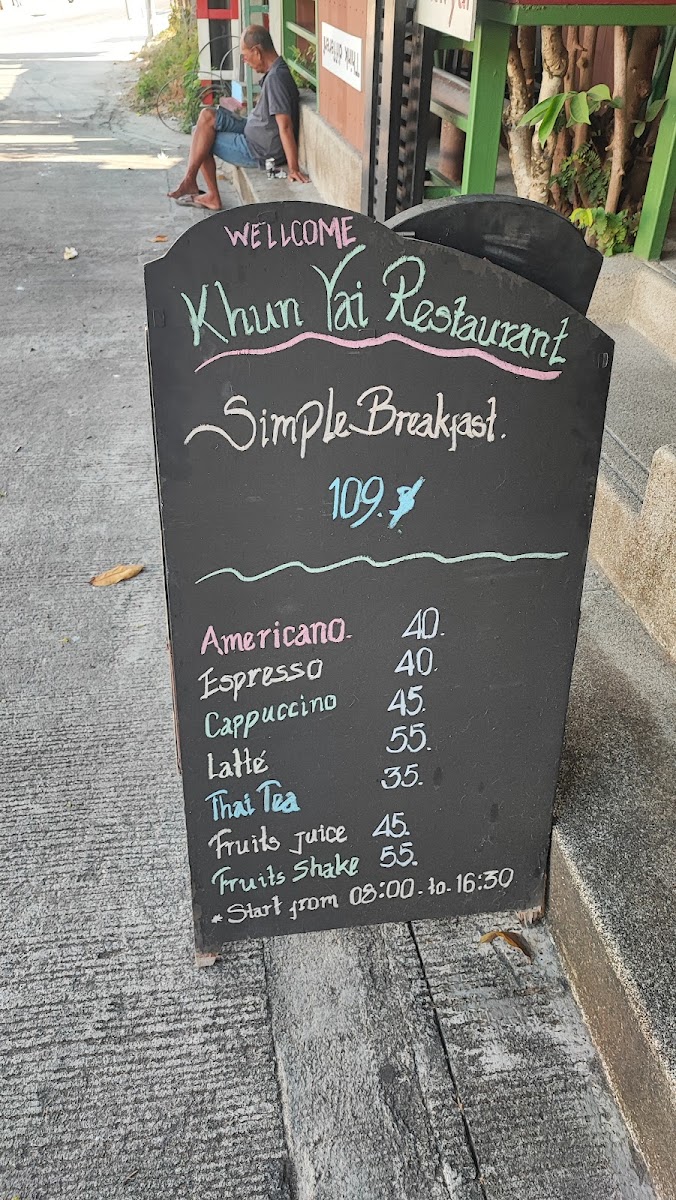 Think different
WELLCOME
Khun Yai Restaurant
Simple Breakfast.
109.฿
Americano. 40.
Espresso 40.
Cappuccino 45.
Latté 55.
Thai Tea 35.
Fruits juice 45.
Fruits Shake 55.
* Start from 08:00 - to - 16:30